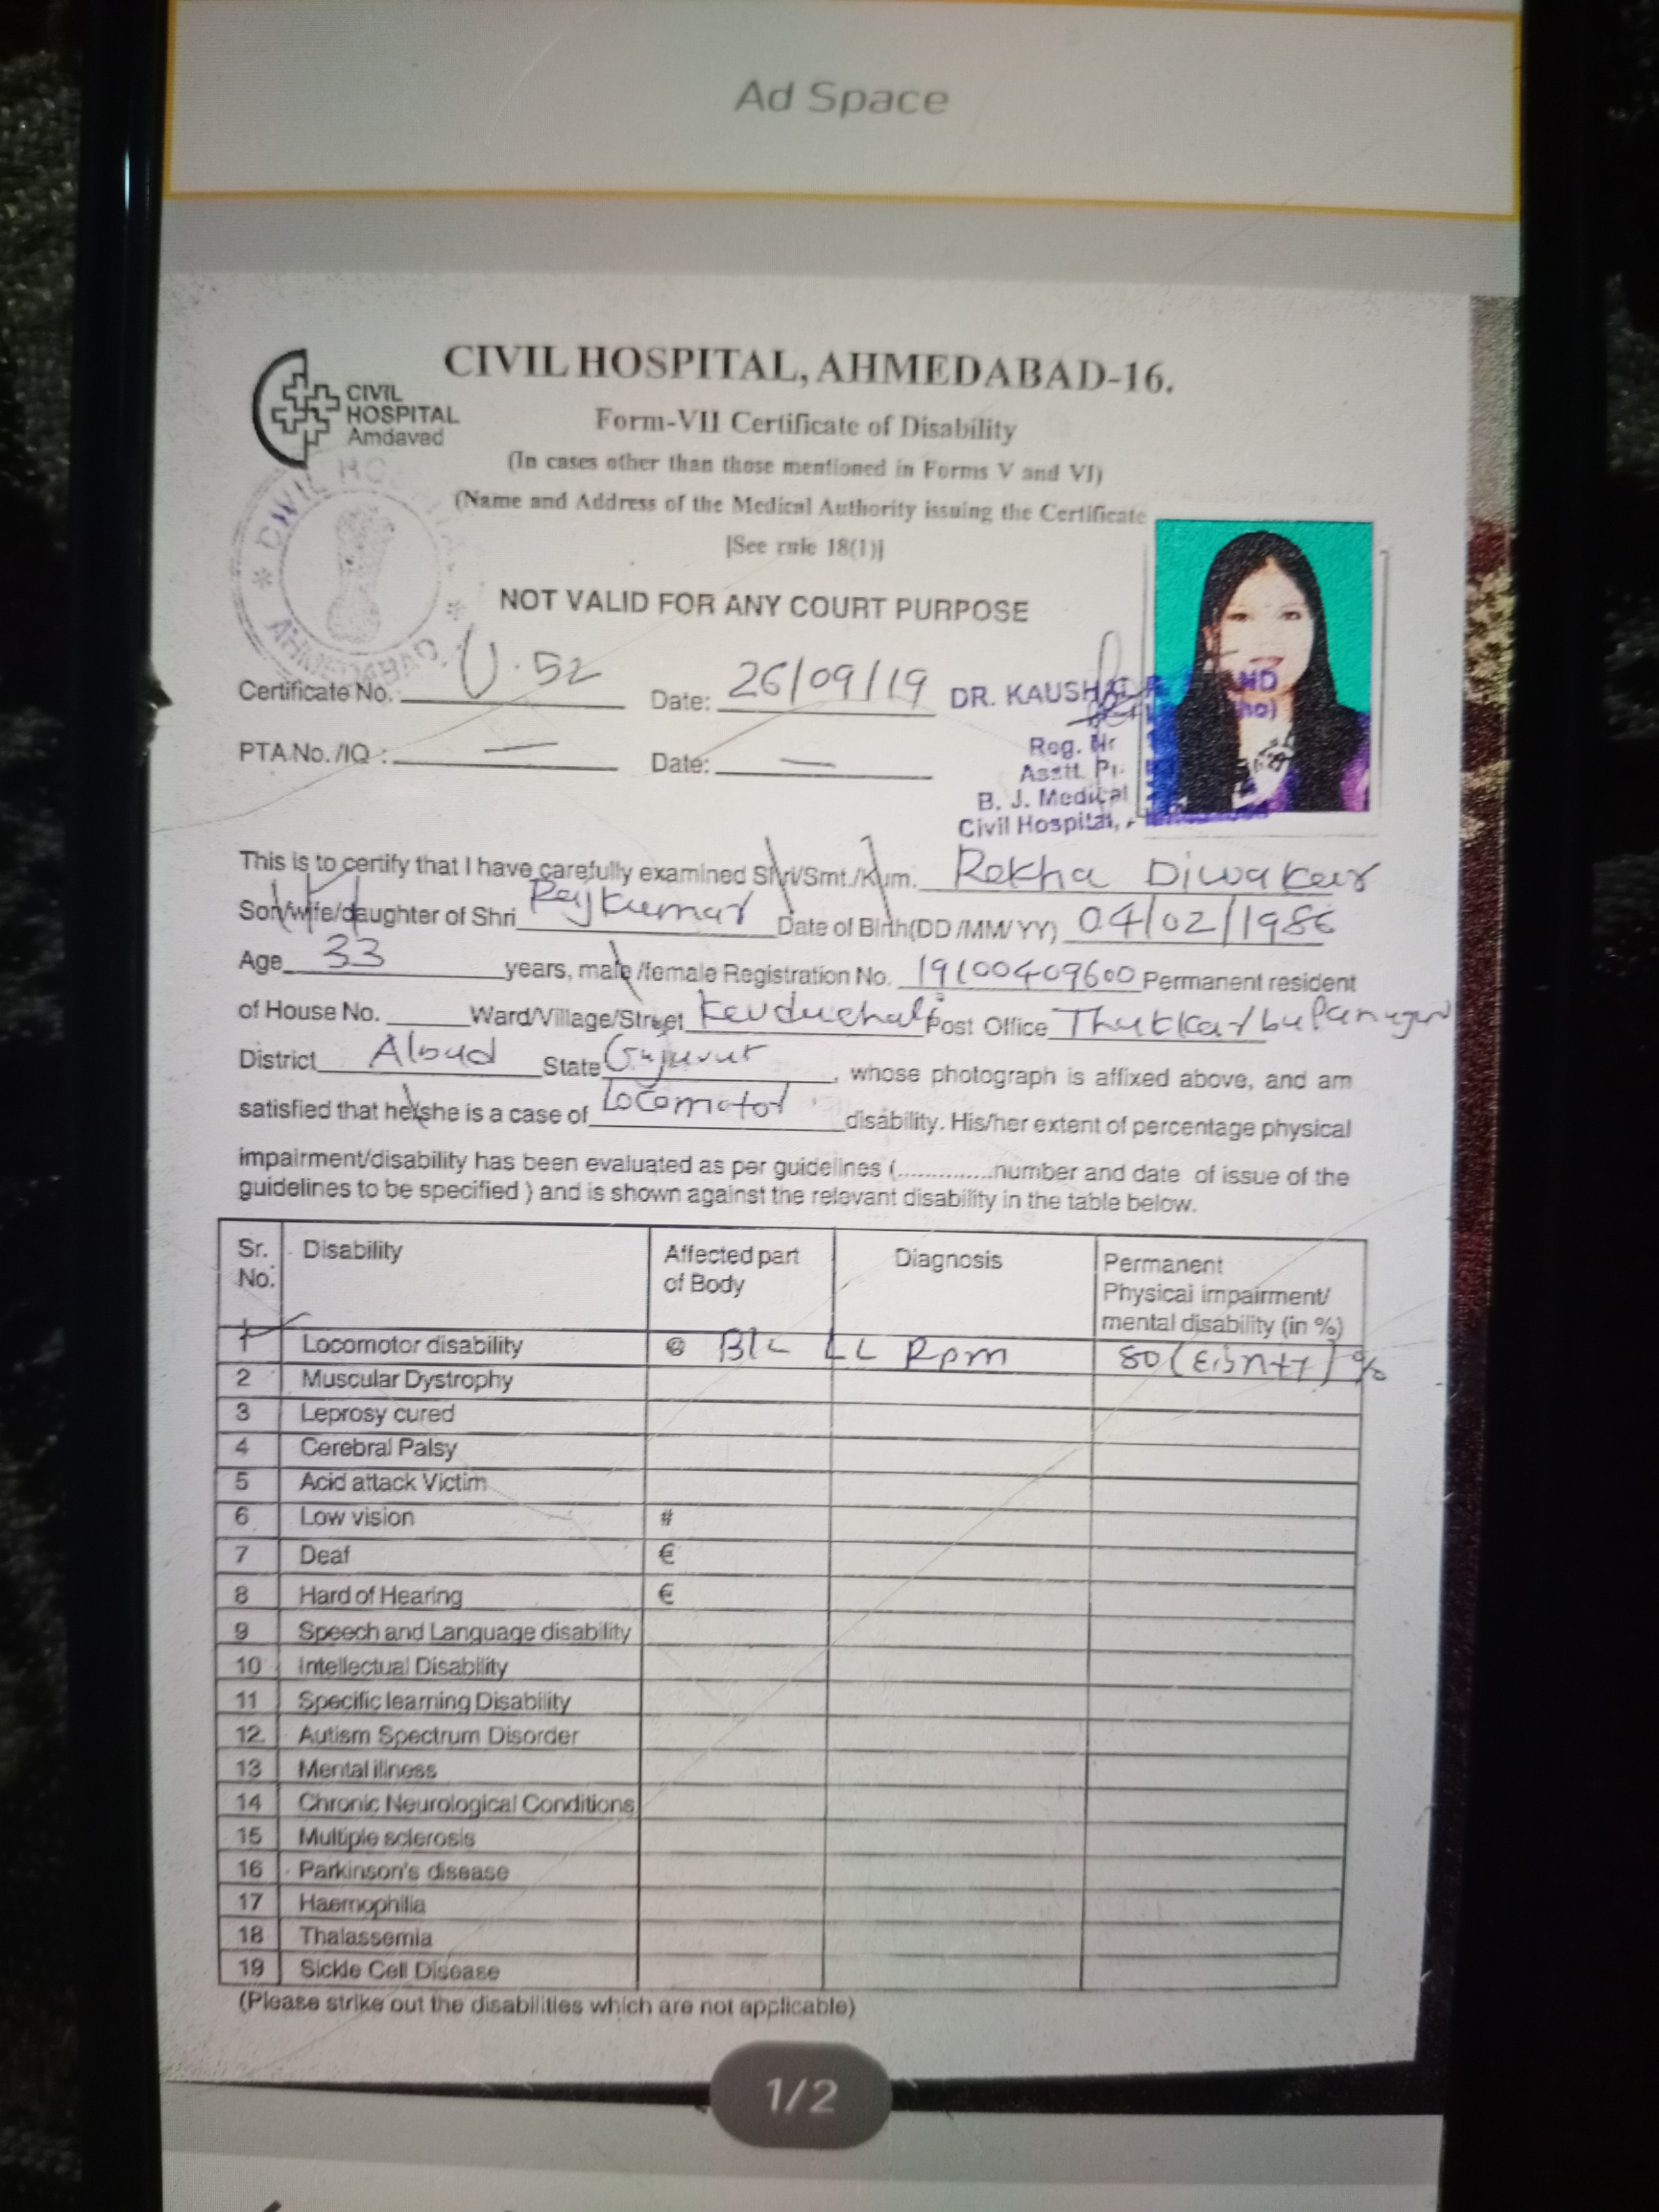 Ad Space
CIVIL HOSPITAL, AHMEDABAD-16.
CIVIL
HOSPITAL
Amdavad
Form-VII Certificate of Disability
(In cases other than those mentioned in Forms V and VI)
(Name and Address of the Medical Authority issuing the Certificate
[See rule 18(1)]
CIVIL HO
AHMEDABAD.
NOT VALID FOR ANY COURT PURPOSE
Certificate No. U.52 Date: 26/09/19
DR. KAUSHAL ND
ho)
Reg. Nr
Asstt. Pr.
B. J. Medical
Civil Hospital,
PTA No. /IQ : — Date: —
This is to certify that I have carefully examined Shri/Smt./Kum. Rekha Diwakar
Son/wife/daughter of Shri Rajkumar Date of Birth(DD /MM/ YY) 04/02/1986
Age 33 years, male /female Registration No. 19100409600 Permanent resident
of House No. Ward/Village/Street Post Office
District Abad State Gujurut , whose photograph is affixed above, and am
satisfied that he/she is a case of Locomotor disability. His/her extent of percentage physical
impairment/disability has been evaluated as per guidelines (..............number and date of issue of the
guidelines to be specified ) and is shown against the relevant disability in the table below.
Sr. No. Disability Affected part of Body Diagnosis Permanent Physical impairment/ mental disability (in %)
1 Locomotor disability @ B/L LL PPRM 80 %
2 Muscular Dystrophy
3 Leprosy cured
4 Cerebral Palsy
5 Acid attack Victim
6 Low vision #
7 Deaf €
8 Hard of Hearing €
9 Speech and Language disability
10 Intellectual Disability
11 Specific learning Disability
12 Autism Spectrum Disorder
13 Mental illness
14 Chronic Neurological Conditions
15 Multiple sclerosis
16 Parkinson's disease
17 Haemophilia
18 Thalassemia
19 Sickle Cell Disease
(Please strike out the disabilities which are not applicable)
1/2